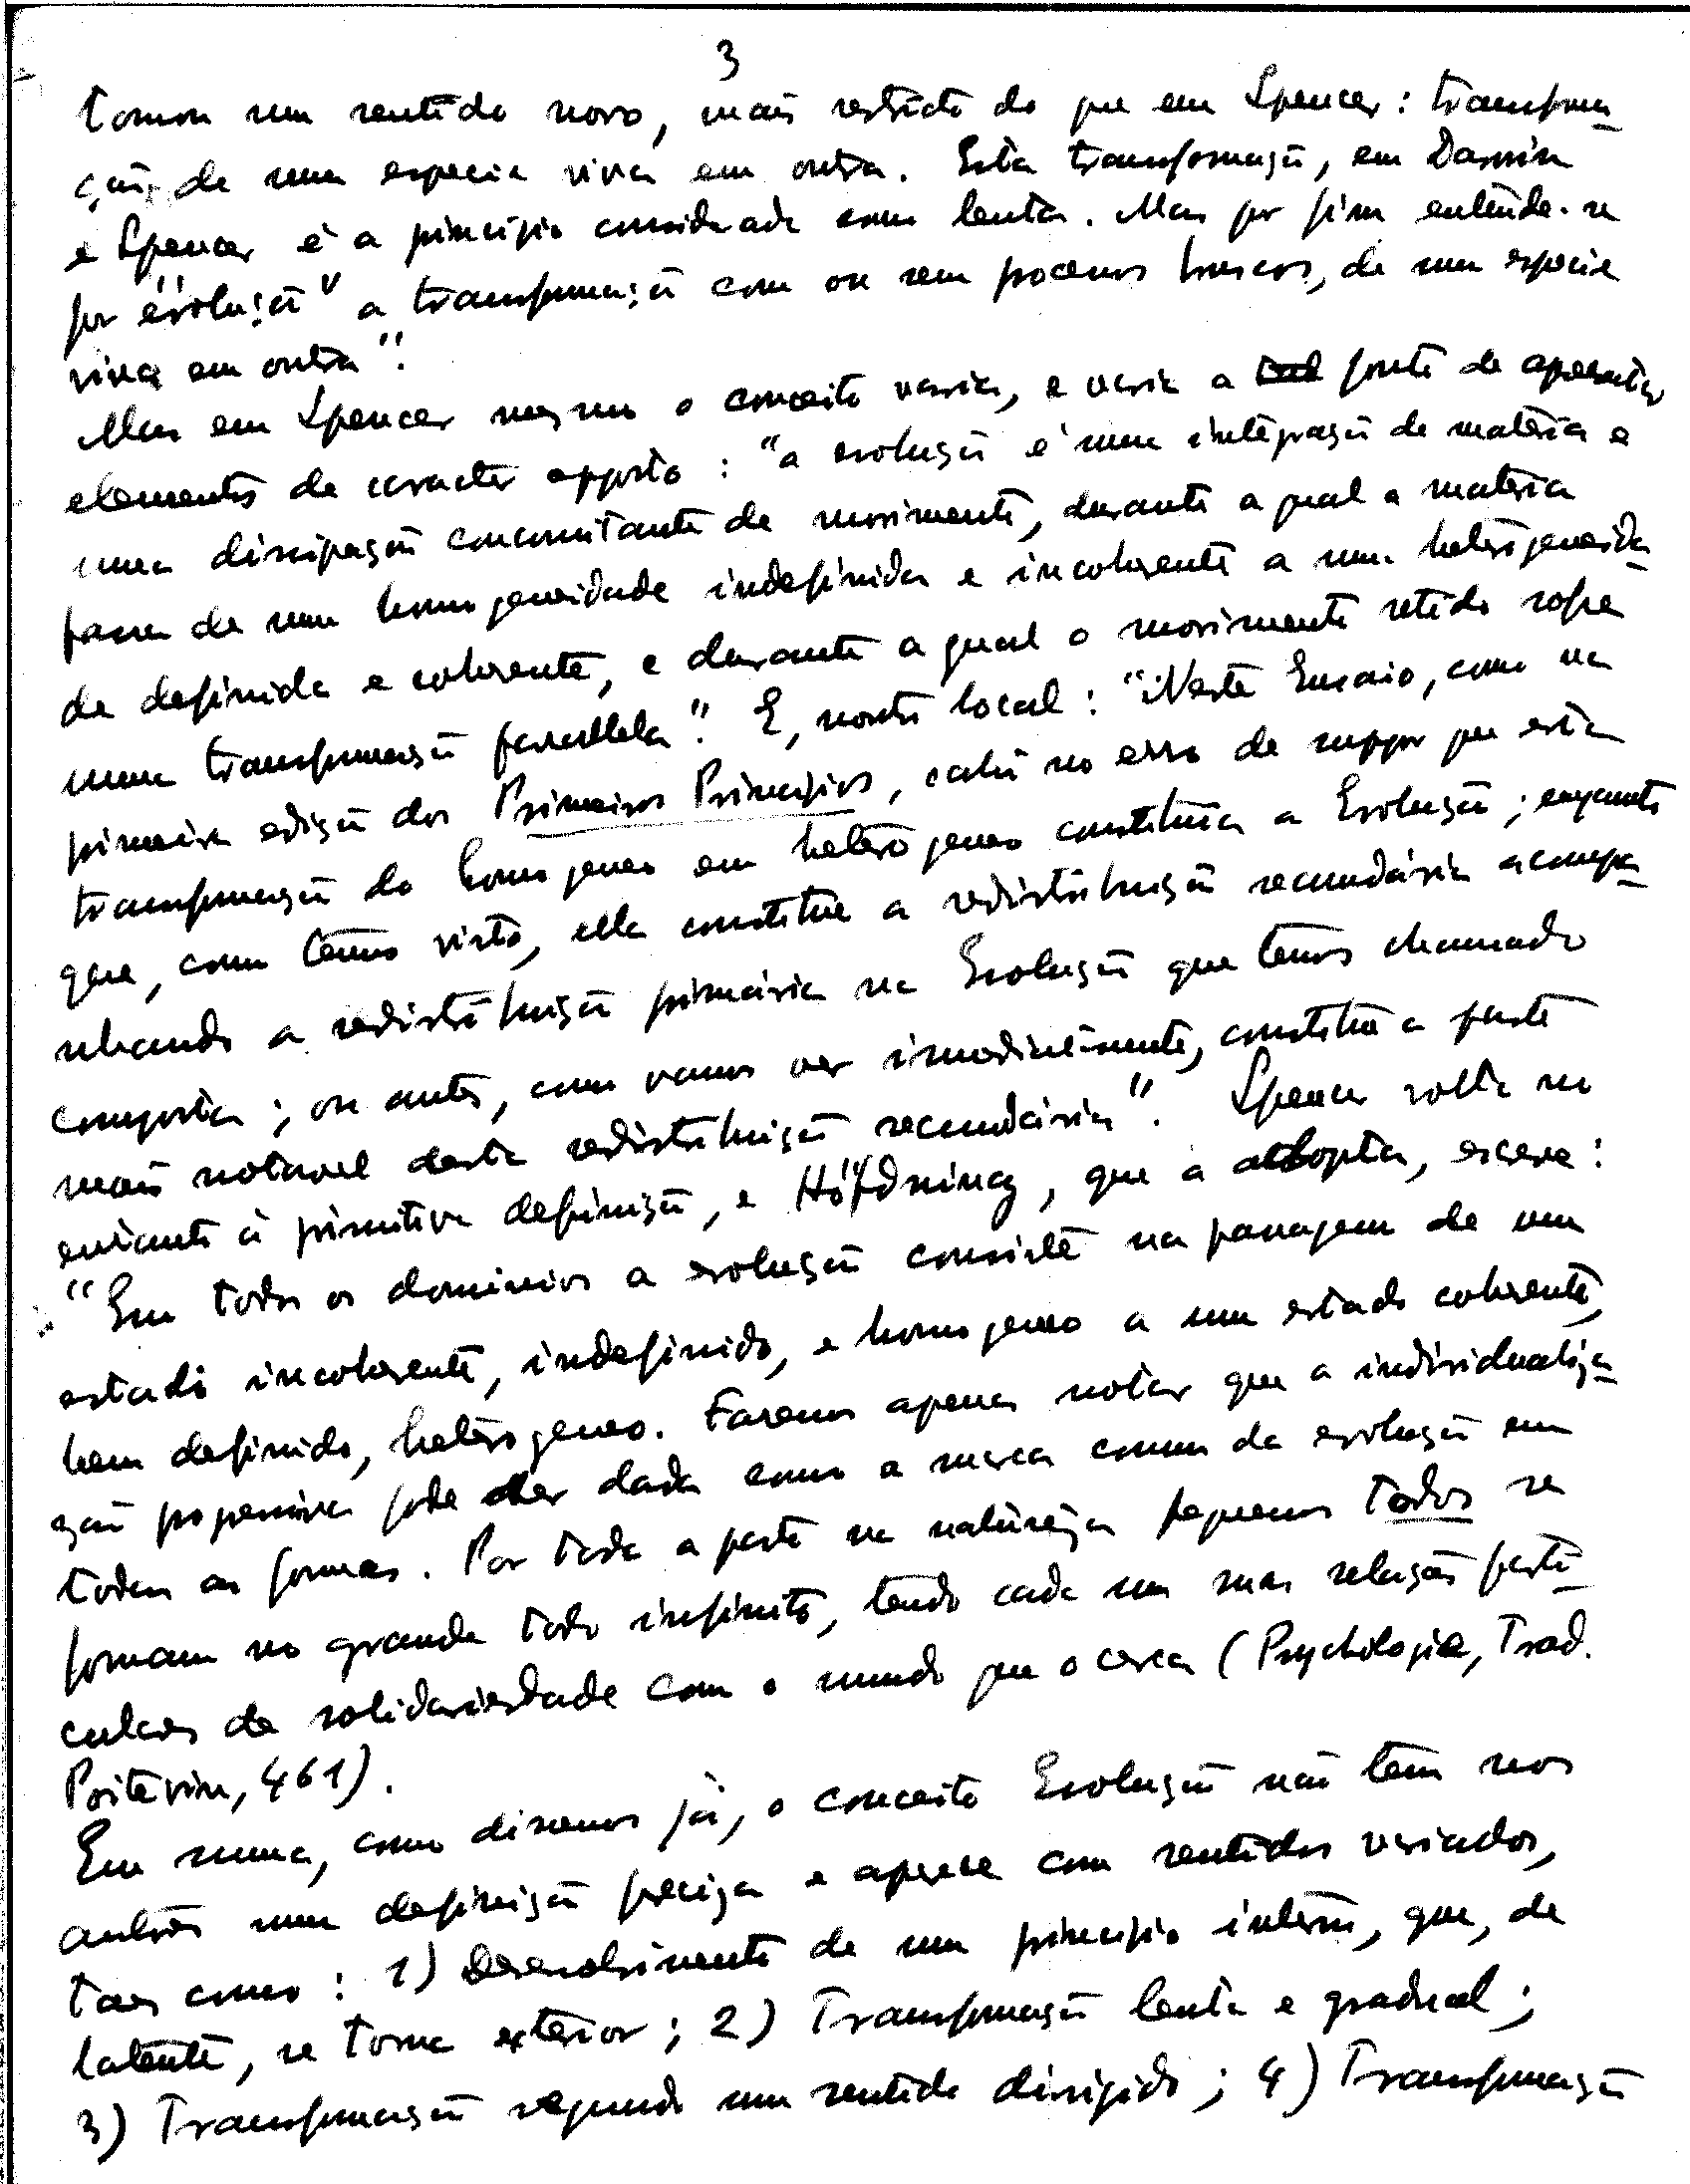 3
tomou um sentido novo, mais restricto do que em Spencer: transforma
ção de uma especie viva em outra. Esta transformação, em Darwin
e Spencer é a principio considerada como lenta. Mas por fim entende-se
por "evolução" a transformação com ou sem processos bruscos, de uma especie
viva em outra".
Mas em Spencer mesmo o conceito varia, e varia a ponto de apresentar
elementos de caracter opposto: "a evolução é uma integração de materia e
uma dissipação concomitante de movimento, durante a qual a materia
passa de uma homogeneidade indefinida e incoherente a uma heterogeneida
de definida e coherente, e durante a qual o movimento retido sofre
uma transformação parallela". E, noutro local: "Neste Ensaio, como na
primeira edição dos Primeiros Principios, cahi no erro de suppor que esta
transformação do homogeneo em heterogeneo constituia a Evolução; enquanto
que, como temos visto, ella constitue a redistribuição secundária acompa
nhando a redistribuição primária na Evolução que temos chamado
composta; ou antes, como vamos ver immediatamente, constitue a parte
mais notavel desta redistribuição secundária". Spencer volta no
entanto á primitiva definição, e Höfdning, que a adopta, escreve:
"Em todos os dominios a evolução consiste na passagem de um
estado incoherente, indefinido, e homogeneo a um estado coherente,
bem definido, heterogeneo. Faremos apenas notar que a individualiza
ção progressiva pode ser dada como a marca comum da evolução em
todas as formas. Por toda a parte na natureza pequenos todos se
formam no grande todo infinito, tendo cada um suas relações parti
culares de solidariedade com o mundo que o cerca (Psychologie, Trad.
Poitevin, 461).
Em summa, como dissemos já, o conceito Evolução não tem nos
autores uma definição precisa e aparece com sentidos variados,
taes como: 1) Desenvolvimento de um principio interno, que, de
latente, se torna exterior; 2) Transformação lenta e gradual;
3) Transformação segundo um sentido dirigido; 4) Transformação